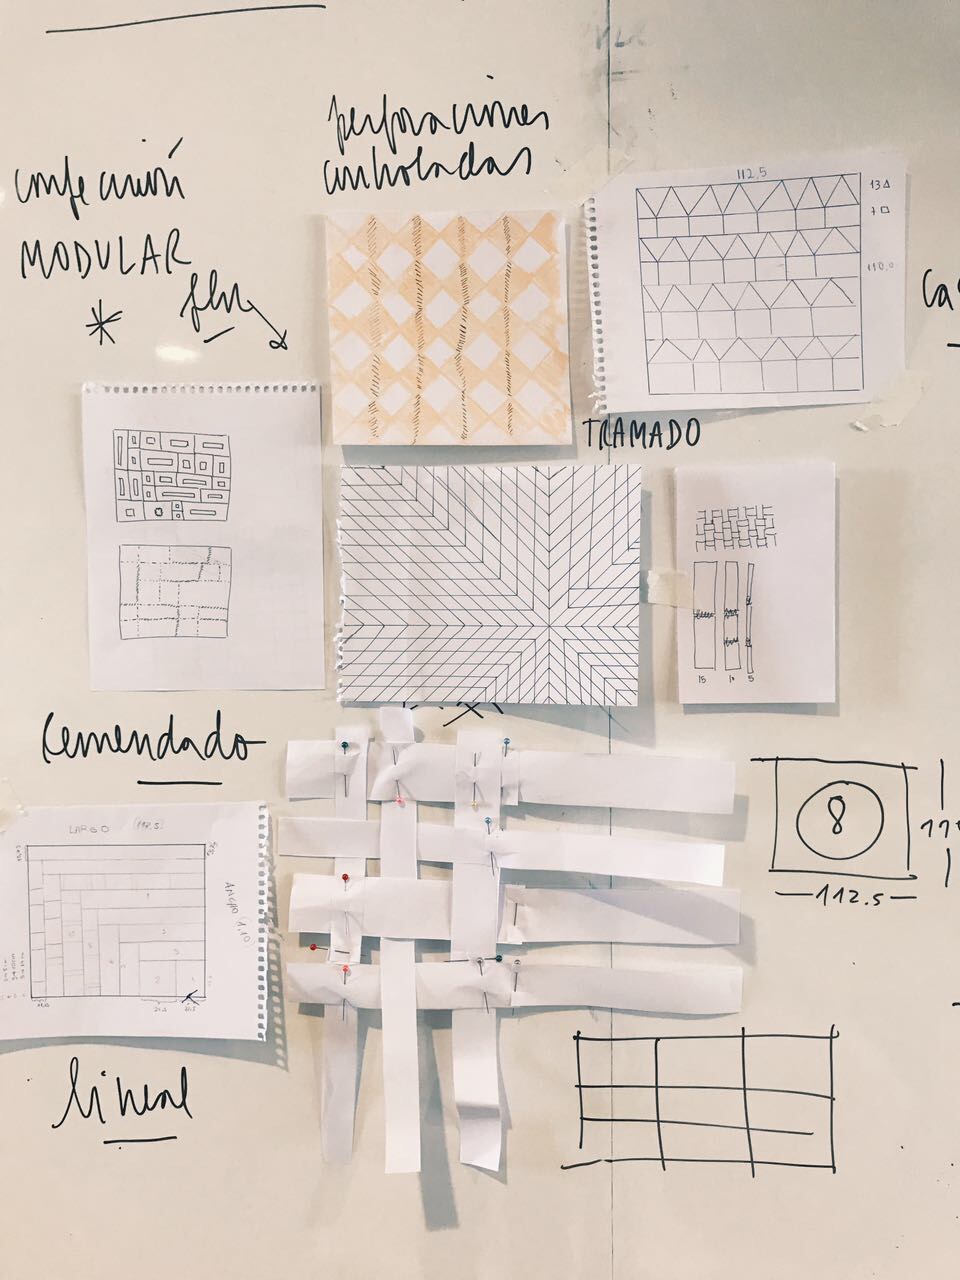 perforaciones
controladas
confección
MODULAR
112,5
13 Δ
7 □
110,0
TRAMADO
15
10
5
Remendado
LARGO (112,5)
ANCHO (1,10)
8
112.5
lineal